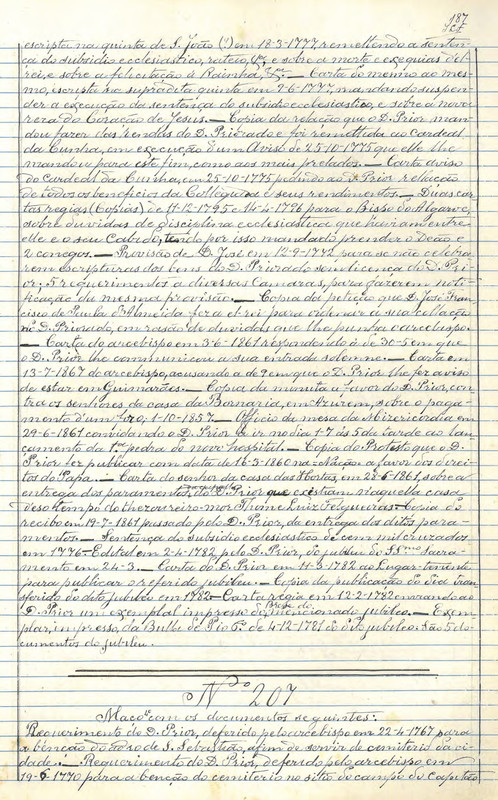 187
escripta na quinta de S. João (?) em 18-3-1777 remettendo a senten-
ça do subsidio ecclesiastico, rateio, &ª e sobre a morte e exequias d'el
rei, e sobre a felicitação á Rainha, &ª. — Carta do mesmo ao mes-
mo, escripta na supradita quinta em 2-6-1777, mandando suspen-
der a execução da sentença do subsidio ecclesiastico, e sobre a nova
reza do Coração de Jesus. — Copia da relação que o D. Prior man-
dou fazer das rendas do D. Priorado e foi remettida ao cardeal
da Cunha, em execução d'um Aviso de 25-10-1775 que elle lhe
mandou para este fim, como aos mais prelados. — Carta aviso
do Cardeal da Cunha, em 25-10-1775 pedindo ao D. Prior relação
de todos os beneficios da Collegiada e seus rendimentos. — Duas car-
tas regias (copias) de 11-12-1795 e 16-4-1796 para o Bispo do Algarve,
sobre duvidas de disciplina ecclesiastica que havia entre
elle e o seu Cabido, tendo por isso mandado prender o Deão e
2 conegos. — Provisão de D. José em 12-9-1772 para se não celebra-
rem escripturas dos bens do D. Priorado sem licença do D. Pri-
or; 5 requerimentos a diversas Camaras, para fazerem noti-
ficação da mesma provisão. — Copia da petição que D. José Fran-
cisco de Paula d'Almeida fez a el-rei para ordenar a sua collação
no D. Priorado, em rasão de duvidas que lhe punha o arcebispo.
— Carta do arcebispo em 3-6-1861 respondendo á de 30-5 em que
o D. Prior lhe communicou a sua entrada solemne. — Carta em
13-7-1867 do arcebispo, acusando a de 9 em que o D. Prior lhe fez aviso
de estar em Guimarães. — Copia da minuta a favor do D. Prior, con-
tra os senhores da casa da Bornaria, em Azurem, sobre o paga-
mento d'um foro, 1-10-1857. — Officio da mesa da Misericordia em
29-6-1861 convidando o D. Prior a ir no dia 1-7 ás 5 da tarde ao lan-
çamento da 1ª pedra do novo hospital. — Copia do Protesto que o D.
Prior fez publicar com data de 16-3-1860 na nação a favor dos direi-
tos do Papa. — Carta do senhor da casa das Hortas, em 28-6-1861, sobre a
entrega dos paramentos, do D. Prior que existiam naquella casa
deso tempo do thezoureiro-mor Thomé Luiz Felgueiras — Copia do
recibo em 19-7-1861 passado pelo D. Prior, da entrega dos ditos para-
mentos. — Sentença do subsidio ecclesiastico de cem mil cruzados
em 1776 — Edital em 2-4-1782 pelo D. Prior, do jubileu do SSmo Sacra-
mento em 24-3. — Carta do D. Prior em 11-3-1782 ao Lugar-tenente
para publicar o referido jubileu. — Copia da publicação do dia tran-
sferido do dito jubileu em 1782 — Carta regia em 12-2-1782 enviando ao
D. Prior um exemplar impresso da Breve do mencionado jubileo. — Exem-
plar, impresso, da Bulla de Pio 6º de 4-12-1781 do dito jubileo. São 5 do-
cumentos do jubileu.
Nº 207
Maço com os documentos seguintes:
Requerimento do D. Prior, deferido pelo arcebispo em 22-4-1767 para
a benção do adro de S. Sebastião, afim de servir de cemiterio da ci-
dade. — Requerimento do D. Prior, deferido pelo arcebispo em
19-6-1770 para a benção do cemiterio no sitio do campo do Capitão